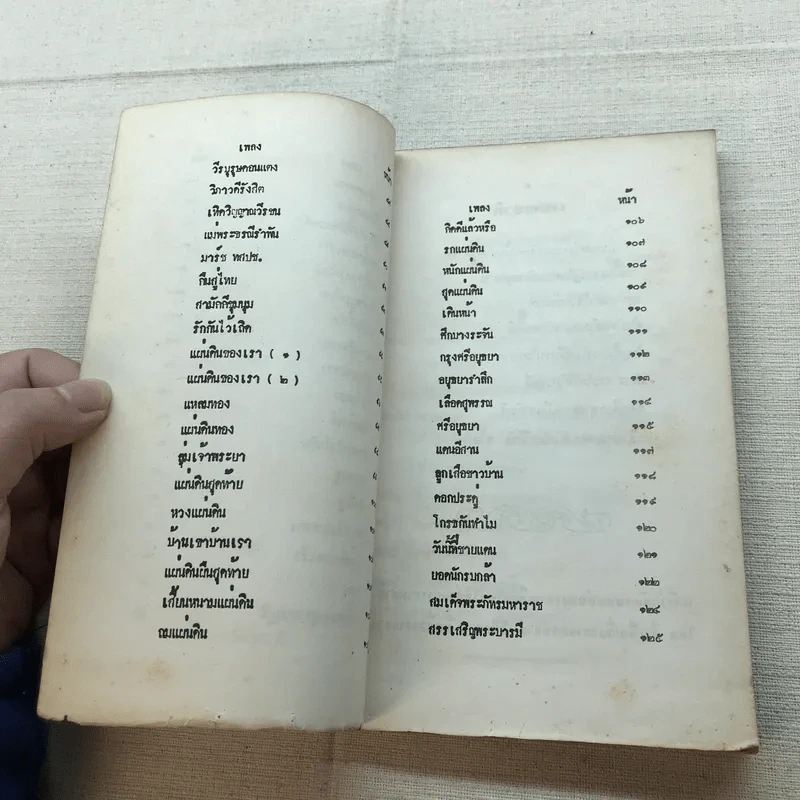 เพลง
วีรบุรุษดอนแตง
วิภาวดีรังสิต
เทิดวิญญาณวีรชน
แม่พระธรณีรำพัน
มาร์ช ทสปช.
กินสู่ไทย
สามัคคีชุมนุม
รักกันไว้เถิด
แผ่นดินของเรา ( ๑ )
แผ่นดินของเรา ( ๒ )
แหลมทอง
แผ่นดินทอง
ลุ่มเจ้าพระยา
แผ่นดินสุดท้าย
หวงแผ่นดิน
บ้านเขาบ้านเรา
แผ่นดินผืนสุดท้าย
เสี้ยนหนามแผ่นดิน
ถมแผ่นดิน
เพลง หน้า
คิดดีแล้วหรือ ๑๐๖
รกแผ่นดิน ๑๐๗
หนักแผ่นดิน ๑๐๘
สุดแผ่นดิน ๑๐๙
เดินหน้า ๑๑๐
ศึกบางระจัน ๑๑๑
กรุงศรีอยุธยา ๑๑๒
อยุธยารำลึก ๑๑๓
เลือดสุพรรณ ๑๑๔
ศรีอยุธยา ๑๑๕
แดนอีสาน ๑๑๗
ลูกเสือชาวบ้าน ๑๑๘
ดอกประดู่ ๑๑๙
โกรธกันทำไม ๑๒๐
วันนี้ที่ชายแดน ๑๒๑
ยอดนักรบกล้า ๑๒๒
สมเด็จพระภัทรมหาราช ๑๒๔
สรรเสริญพระบารมี ๑๒๕